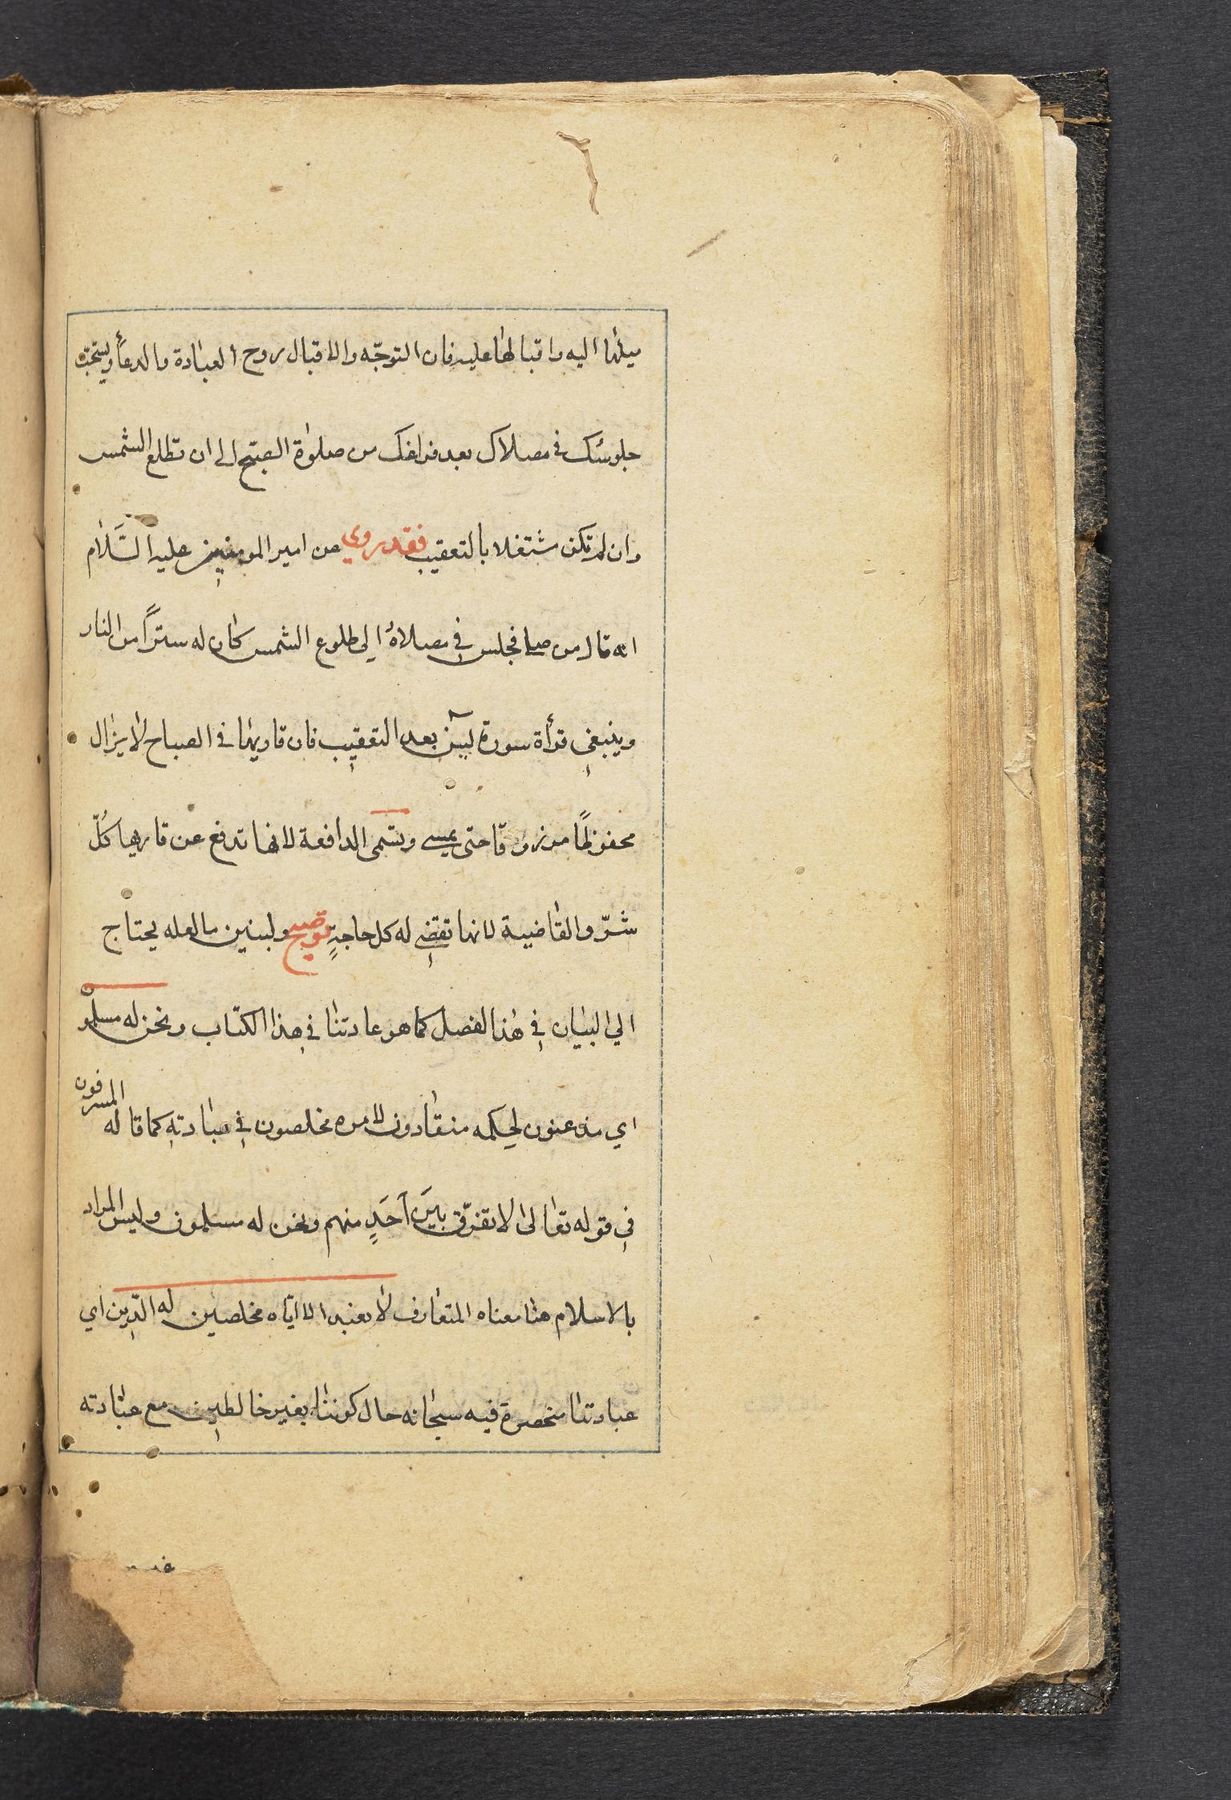 ميلها اليه واقبالها عليه فان التوجّه والاقبال روح العبادة والدعأ ويستحبّ
جلوسك فى مصلاك بعد فراغك من صلوٰة الصبح الى ان تطلع الشمس
وان لم تكن مشتغلا بالتعقيب فقد روي عن امير المومنين عليه السَّلام
انه قال من صلى فجلس في مصلاه الي طلوع الشمس كان له ستراً من النار
وينبغي قرأة سورة يٓس بعد التعقيب فان قاريها فى الصباح لا يزال
محفوظًا مرزوقًا حتى يمسي وتسمى الدافعة لانها تدفع عن قاريها كُلّ
شرّ والقاضية لانها تقضي له كل حاجةٍ توضيح ولنبين ما لعله يحتاج
الي البيان في هذا الفصل كما هو عادتنا في هذا الكتاب ونحن له مسلمون
اي مذعنون لحكمه منقادون لامره مخلصون في عبادته كما قاله المسرفون
في قوله تعالى لا نفرّق بَينَ أحَدٍ منهم ونحن له مسلمون وليس المراد
بالاسلام هنا معناه المتعارف لا نعبد الا ايّاه مخلصين له الدّين اي
عبادتنا منحصرة فيه سبحانه حال كوننا بغير خالطين مع عبادته